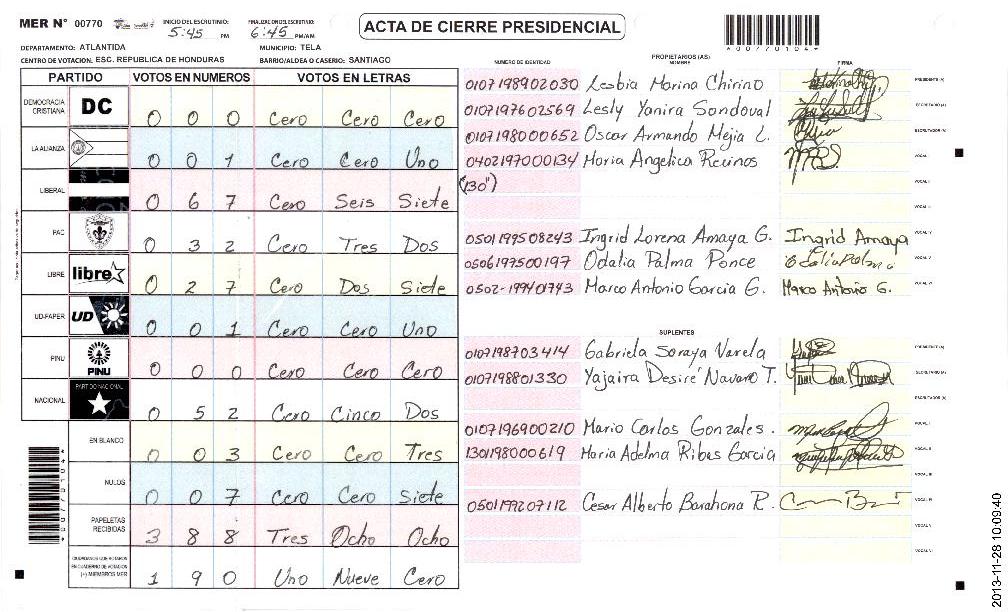 MER N° 00770
INICIO DEL ESCRUTINIO: 5:45 PM
FINALIZACION DEL ESCRUTINIO: 6:45 PM/AM
ACTA DE CIERRE PRESIDENCIAL
*00770104*
DEPARTAMENTO: ATLANTIDA MUNICIPIO: TELA
CENTRO DE VOTACION: ESC. REPUBLICA DE HONDURAS BARRIO/ALDEA O CASERIO: SANTIAGO
PARTIDO VOTOS EN NUMEROS VOTOS EN LETRAS
DEMOCRACIA CRISTIANA DC 0 0 0 Cero Cero Cero
LA ALIANZA 0 0 1 Cero Cero Uno
LIBERAL 0 6 7 Cero Seis Siete
PAC 0 3 2 Cero Tres Dos
LIBRE libre 0 2 7 Cero Dos Siete
UD-FAPER UD 0 0 1 Cero Cero Uno
PINU PINU 0 0 0 Cero Cero Cero
NACIONAL PARTIDO NACIONAL 0 5 2 Cero Cinco Dos
EN BLANCO 0 0 3 Cero Cero Tres
NULOS 0 0 7 Cero Cero Siete
PAPELETAS RECIBIDAS 3 8 8 Tres Ocho Ocho
CIUDADANOS QUE VOTARON EN CUADERNO DE VOTACION (+) MIEMBROS MER 1 9 0 Uno Nueve Cero
NUMERO DE IDENTIDAD PROPIETARIOS (AS) NOMBRE FIRMA
0107198902030 Lesbia Marina Chirino PRESIDENTE (A)
0107197602569 Lesly Yanira Sandoval SECRETARIO (A)
0107198000652 Oscar Armando Mejia L. ESCRUTADOR (A)
0402197000134 Maria Angelica Recinos VOCAL I
(130")
0501199508243 Ingrid Lorena Amaya G. Ingrid Amaya VOCAL IV
0506197500197 Odalia Palma Ponce Odalia Palma VOCAL V
0502-199401743 Marco Antonio Garcia G. Marco Antonio G. VOCAL VI
SUPLENTES
0107198703414 Gabriela Soraya Varela PRESIDENTE (A)
0107198801330 Yajaira Desiré Navarro T. SECRETARIO (A)
ESCRUTADOR (A)
0107196900210 Mario Carlos Gonzales. VOCAL I
1301198000619 Maria Adelma Ribas Garcia VOCAL II
VOCAL III
0501199207112 Cesar Alberto Barahona R. VOCAL IV
VOCAL V
VOCAL VI
2013-11-28 10:09:40